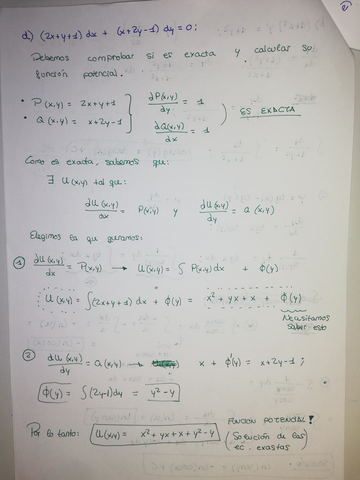 d) (2x+y+1) dx + (x+2y-1) dy = 0;
Debemos comprobar si es exacta y calcular su
función potencial.
• P(x,y) = 2x+y+1 } dP(x,y)/dy = 1
• Q(x,y) = x+2y-1 } dQ(x,y)/dx = 1 } ES EXACTA
Como es exacta, sabemos que:
∃ U(x,y) tal que:
dU(x,y)/dx = P(x,y) y dU(x,y)/dy = Q(x,y)
Elegimos la que queramos:
① dU(x,y)/dx = P(x,y) → U(x,y) = ∫ P(x,y) dx + ϕ(y)
U(x,y) = ∫(2x+y+1) dx + ϕ(y) = x² + yx + x + ϕ(y)
Necesitamos
saber esto
② dU(x,y)/dy = Q(x,y) → x + ϕ'(y) = x+2y-1 ;
ϕ(y) = ∫(2y-1)dy = y²-y
Por lo tanto: U(x,y) = x² + yx + x + y² - y
FUNCIÓN POTENCIAL!
(Solución de las
ec. exactas)